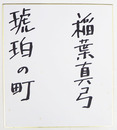 稲葉真弓
琥珀の町